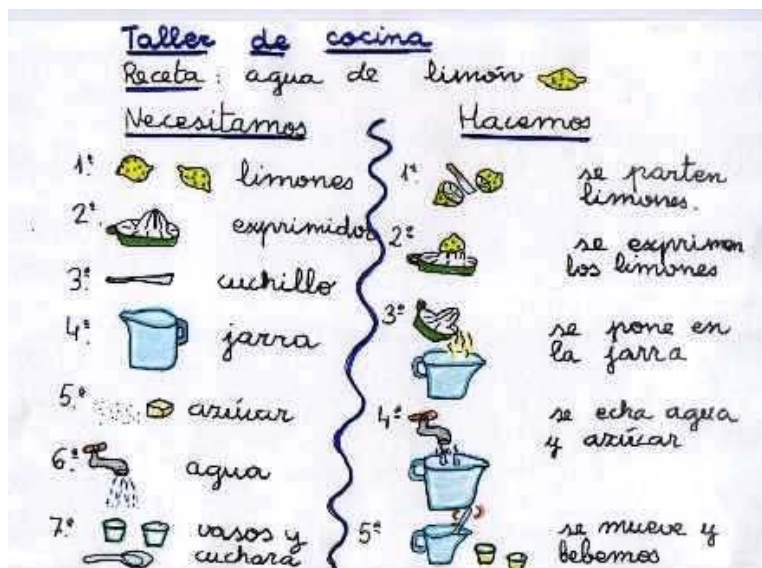 Taller de cocina
Receta: agua de limón
Necesitamos
1º limones
2º exprimidor
3º cuchillo
4º jarra
5º azúcar
6º agua
7º vasos y
cuchara
Hacemos
1º se parten
limones.
2º se exprimen
los limones
3º se pone en
la jarra
4º se echa agua
y azúcar
5º se mueve y
bebemos